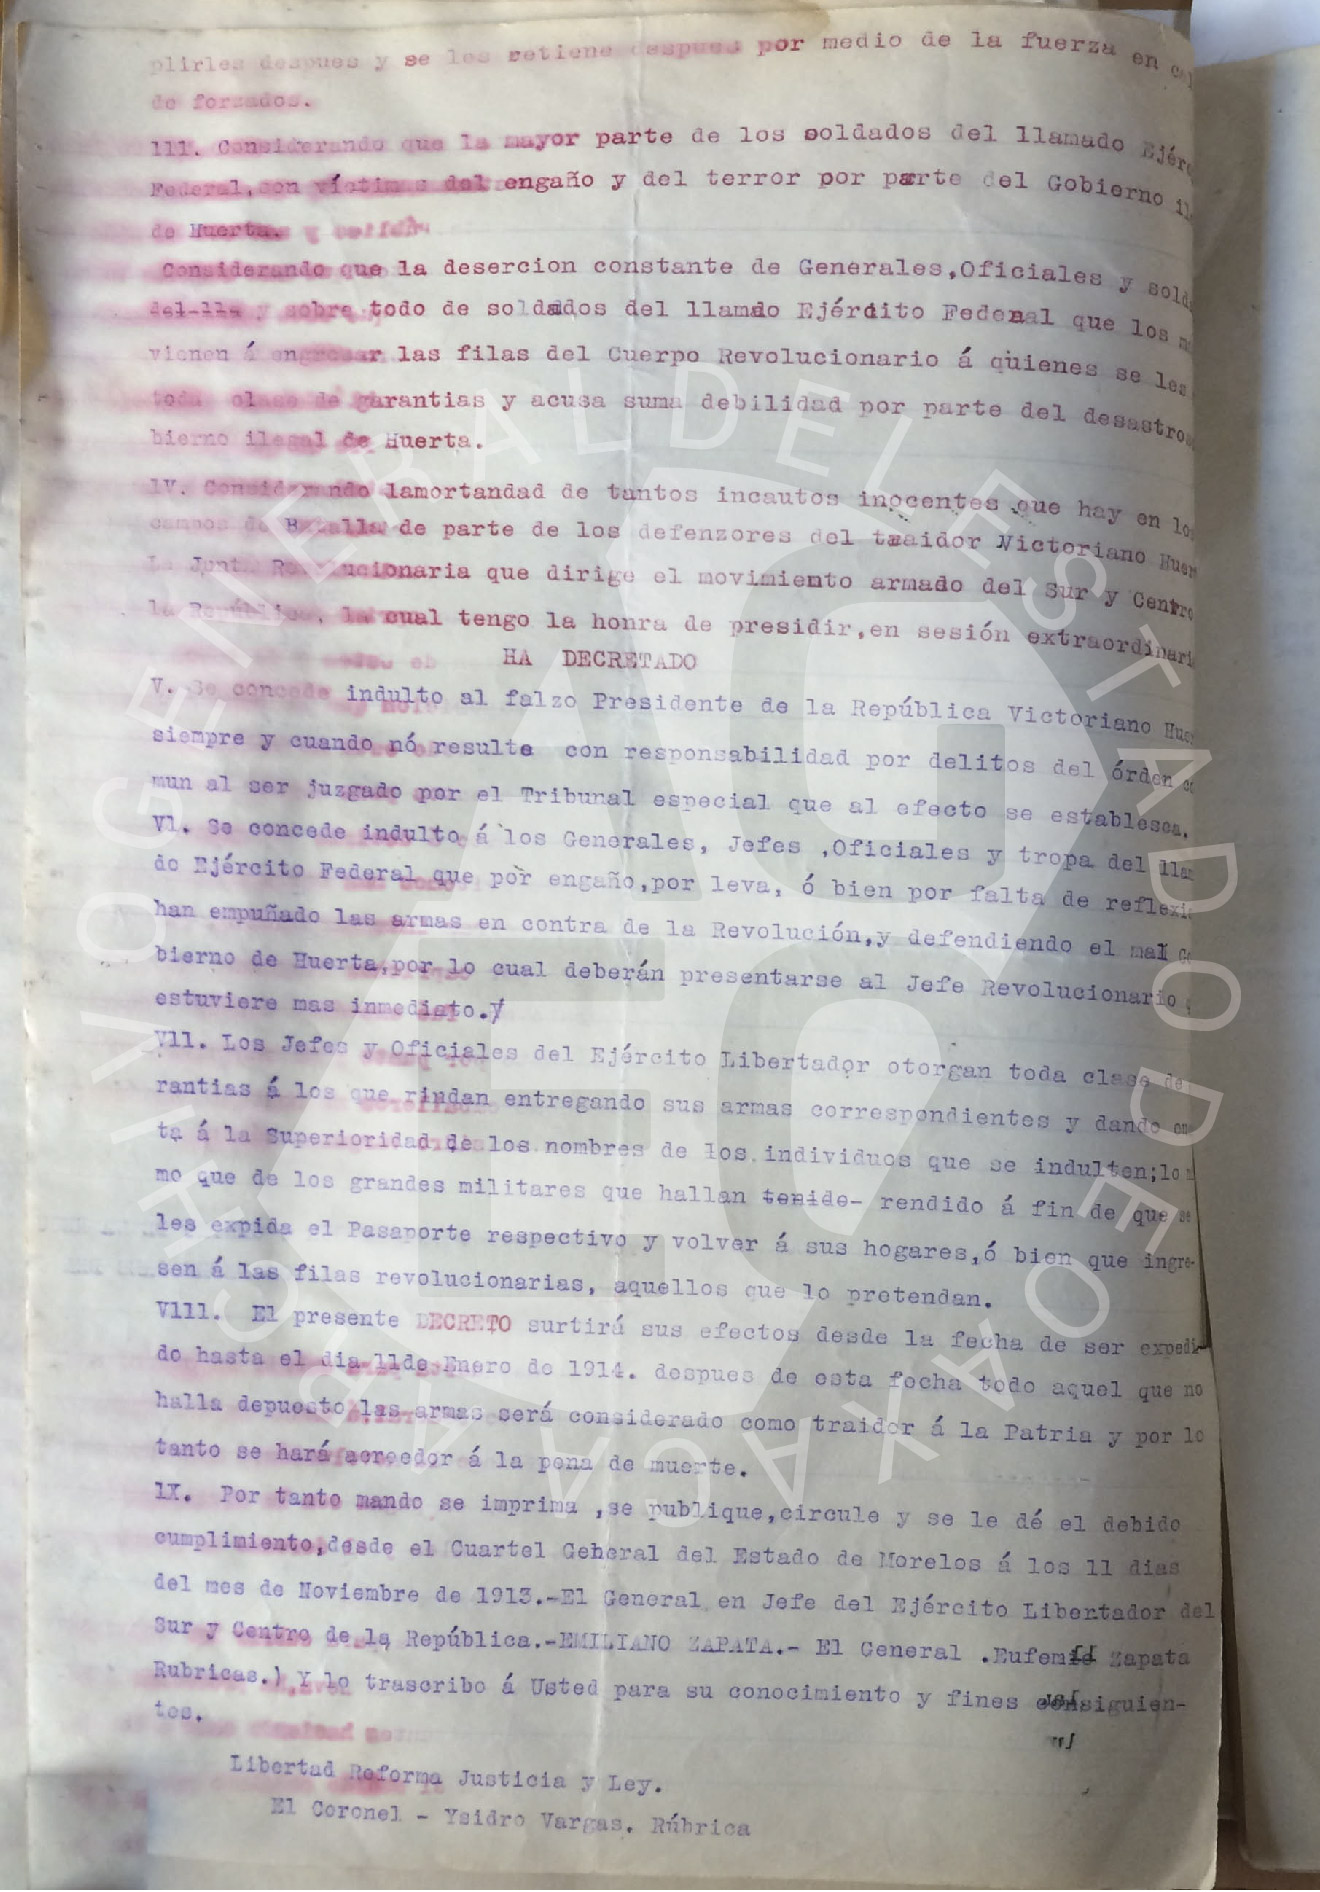 plirles despues y se les retiene despues por medio de la fuerza en
de forzados.
111. Considerando que la mayor parte de los soldados del llamado Ejérc
Federal,son víctimas del engaño y del terror por parte del Gobierno il
de Huerta.
Considerando que la desercion constante de Generales,Oficiales y solda
del lla y sobre todo de soldados del llamdo Ejército Federal que los
vienen á engrosar las filas del Cuerpo Revolucionario á quienes se les
toda clase de garantias y acusa suma debilidad por parte del desastros
bierno ilegal de Huerta.
1V. Considerando lamortandad de tantos incautos inocentes que hay en los
campos de Batalla de parte de los defenzores del traidor Victoriano Huer
La Junta Revolucionaria que dirige el movimiento armado del Sur y Centro
la República, la cual tengo la honra de presidir,en sesión extraordinari
HA DECRETADO
V. Se concede indulto al falzo Presidente de la República Victoriano Huer
siempre y cuando nó resulte con responsabilidad por delitos del órden co
mun al ser juzgado por el Tribunal especial que al efecto se establesca.
V1. Se concede indulto á los Generales, Jefes ,Oficiales y tropa del llam
do Ejército Federal que por engaño,por leva, ó bien por falta de reflexi
han empuñado las armas en contra de la Revolución,y defendiendo el mal Go
bierno de Huerta,por lo cual deberán presentarse al Jefe Revolucionario
estuviere mas inmediato.y
V11. Los Jefes y Oficiales del Ejército Libertador otorgan toda clase de
rantias á los que rindan entregando sus armas correspondientes y dando cu
ta á la Superioridad de los nombres de los individuos que se indulten;lo m
mo que de los grandes militares que hallan tenido- rendido á fin de que se
les expida el Pasaporte respectivo y volver á sus hogares,ó bien que ingre-
sen á las filas revolucionarias, aquellos que lo pretendan.
V111. El presente DECRETO surtirá sus efectos desde la fecha de ser expedi-
do hasta el dia 11de Enero de 1914. despues de esta fecha todo aquel que no
halla depuesto las armas será considerado como traidor á la Patria y por lo
tanto se hará acreedor á la pena de muerte.
1X. Por tanto mando se imprima ,se publique,circule y se le dé el debido
cumplimiento,desde el Cuartel General del Estado de Morelos á los 11 dias
del mes de Noviembre de 1913.-El General en Jefe del Ejército Libertador del
Sur y Centro de la República.-EMILIANO ZAPATA.- El General .Eufemio Zapata
Rubricas.) Y lo trascribo á Usted para su conocimiento y fines consiguien-
tes.
Libertad Reforma Justicia y Ley.
El Coronel - Ysidro Vargas. Rúbrica
ARCHIVO GENERAL DEL ESTADO DE OAXACA